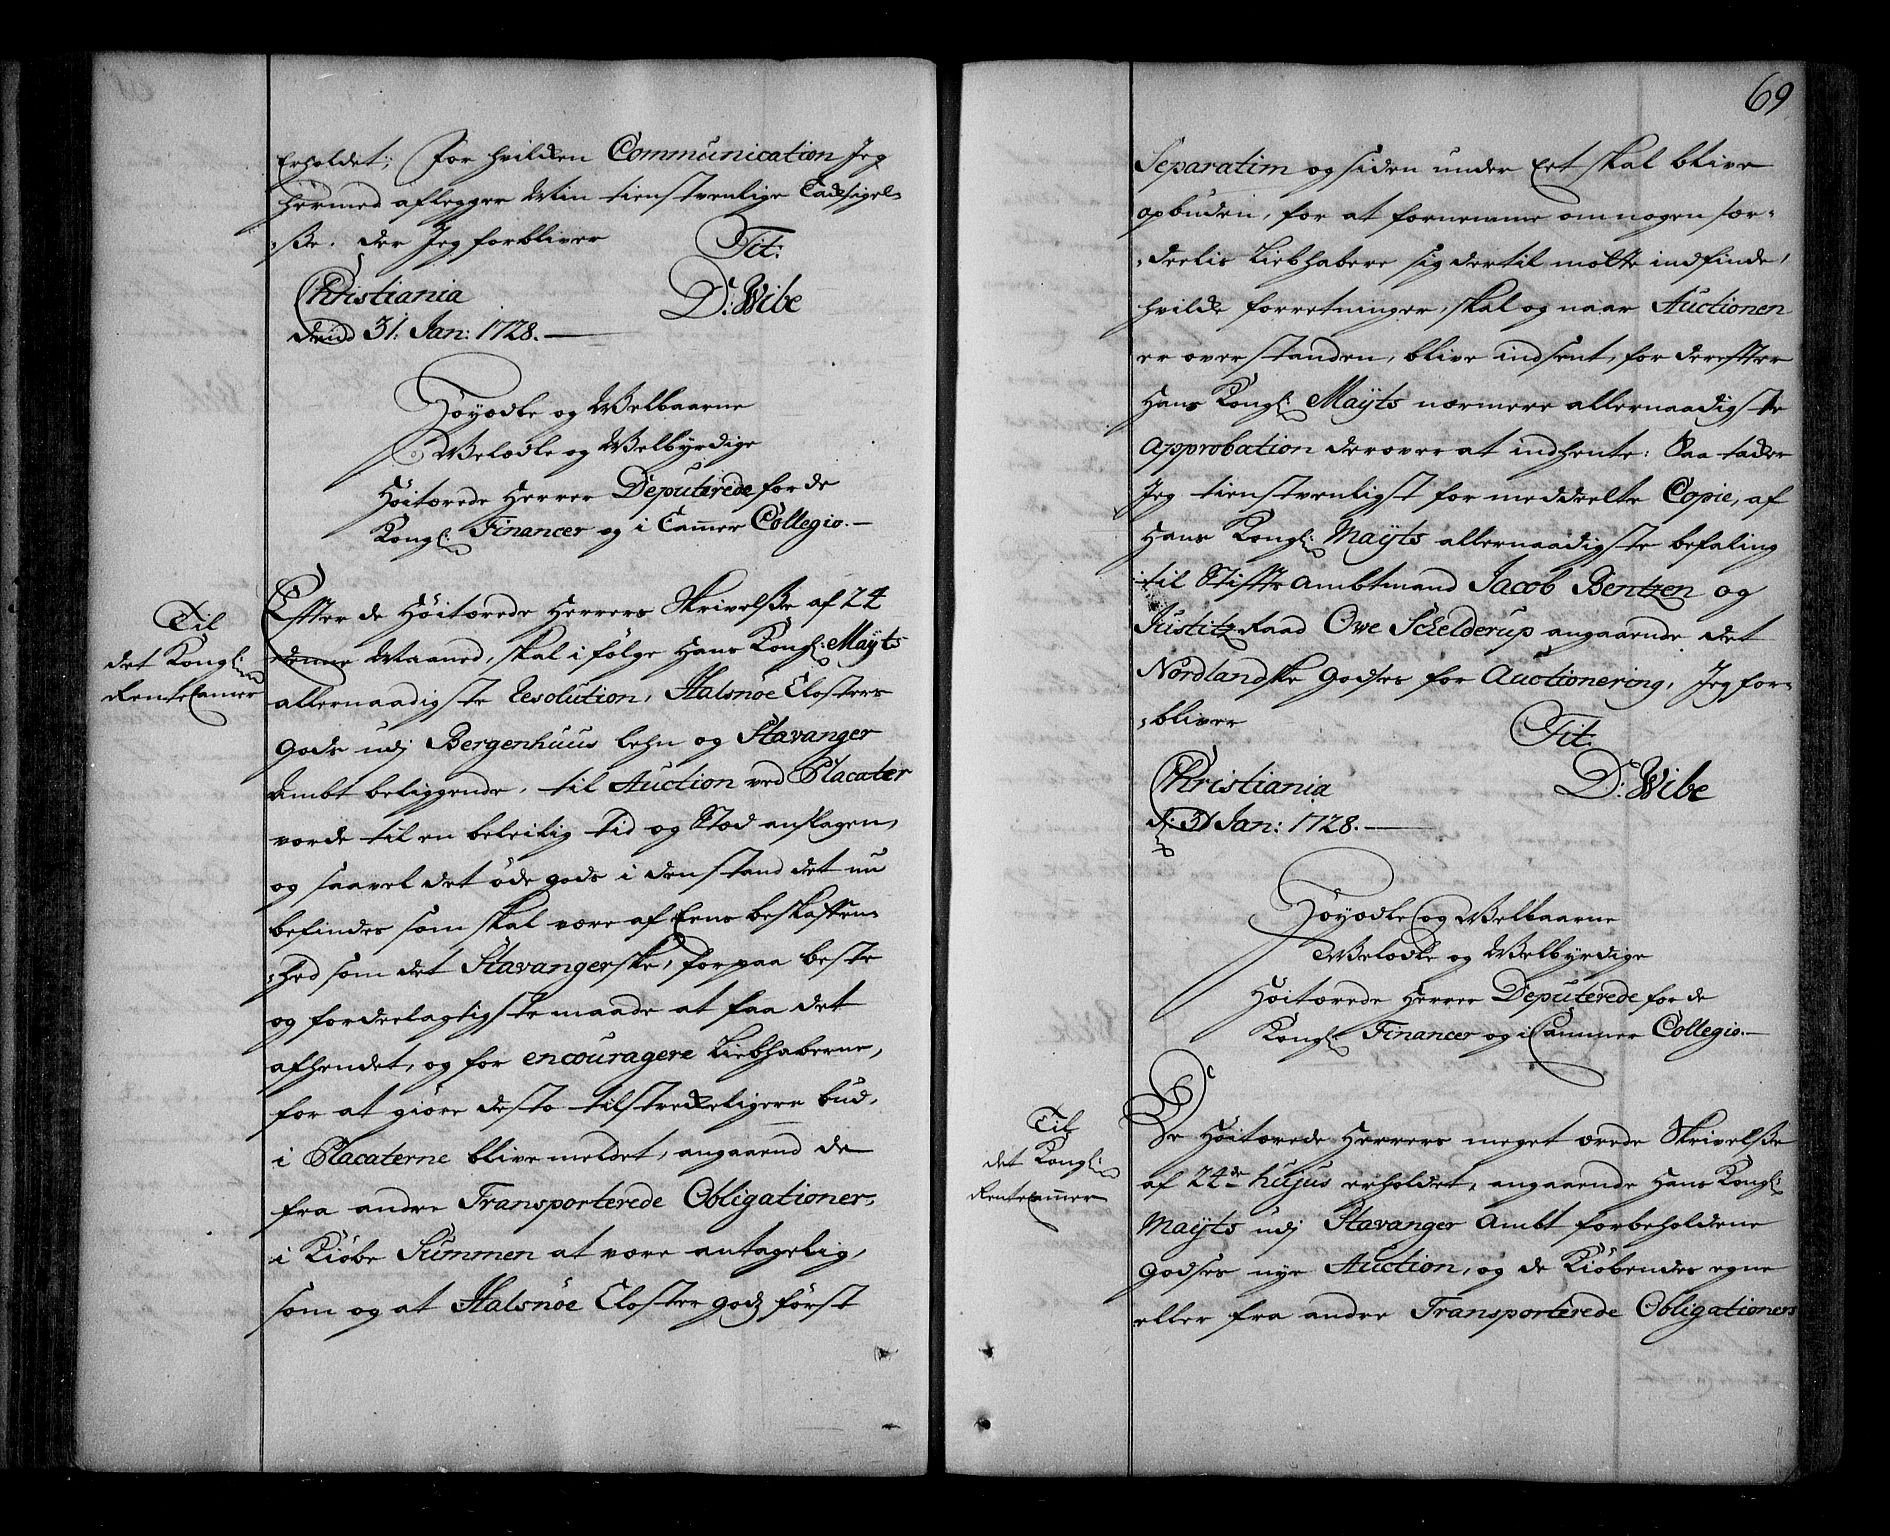 Erholdet; for hvilken Communication Jeg
hermed aflegger Min tienstvenlige Tacksigel-
-ße. der Jeg forbliver
Tit:
Christiania
D: Wibe
dend 31. Jan: 1728.
Höyædle og Welbaarne
Welædle og Welbyrdige
Höitærede Herrer Deputerede for de
Kongl: Financer og i Cam̄er Collegio.
Til
det Kongl:
RenteCamer
Efter de Höitærede Herrers Skrivelße af 24
denne Maaned, skal i fölge Hans Kongl: Mayts
allernaadigste Resolution, Halsnöe Closters
Gods udj Bergenhuus lehn og Stavanger
Ambt beliggende, til Auction ved Placater
vorde til en beleilig tid og Stæd anslagen,
og saavel det öde gods i den stand det nu
befindes som skal være af Eens beskaffen-
-hed som det Stavangerske, for paa beste
og fordeelagtigste maade at faa det
afhendet, og for encouragere Liebhaberne,
for at giöre desto tilstreckeligere bud,
i Placaterne blive meldet, angaaend de
fra andre Transporterede Obligationer,
i Kiöbe Summen at være antagelig,
som og at Halsnöe Closter godz först
69
Separatim og siden under Eet skal blive
opbuden, for at fornemme om nogen sær-
-deelis Liebhabere sig dertil motte indfinde,
hvilcke forretninger, skal og naar Auctionen
er overstanden, blive indsent, for derefter
Hans Kongl: Mayts nærmere allernaadigste
Approbation derover at indhente: Saa tacker
Jeg tienstvenligst for meddeelte Copie, af
Hans Kongl: Mayts allernaadigste befaling
til Stifts Ambtmand Jacob Bentzen og
Justitz Raad Owe Schelderup angaaende det
Nordlandske Godses for Auctionering, Jeg for-
-bliver
Tit.
Christiania
D: Wibe
d: 31 Jan: 1728.
Höyædle og Welbaarne
Welædle og Welbyrdige
Höitærede Herrer Deputerede for de
Kongl: Financer og i Cammer Collegio.
Til
det Kongl:
RenteCam̄er
De Höitærede Herrers meget ærede Skrivelße
af 24de hujus erholdet, angaaende Hans Kongl:
Mayts udj Stavanger Ambt forbeholdene
Godses nye Auction, og de Kiöbendes egne
eller fra andre Transporterede Obligationers